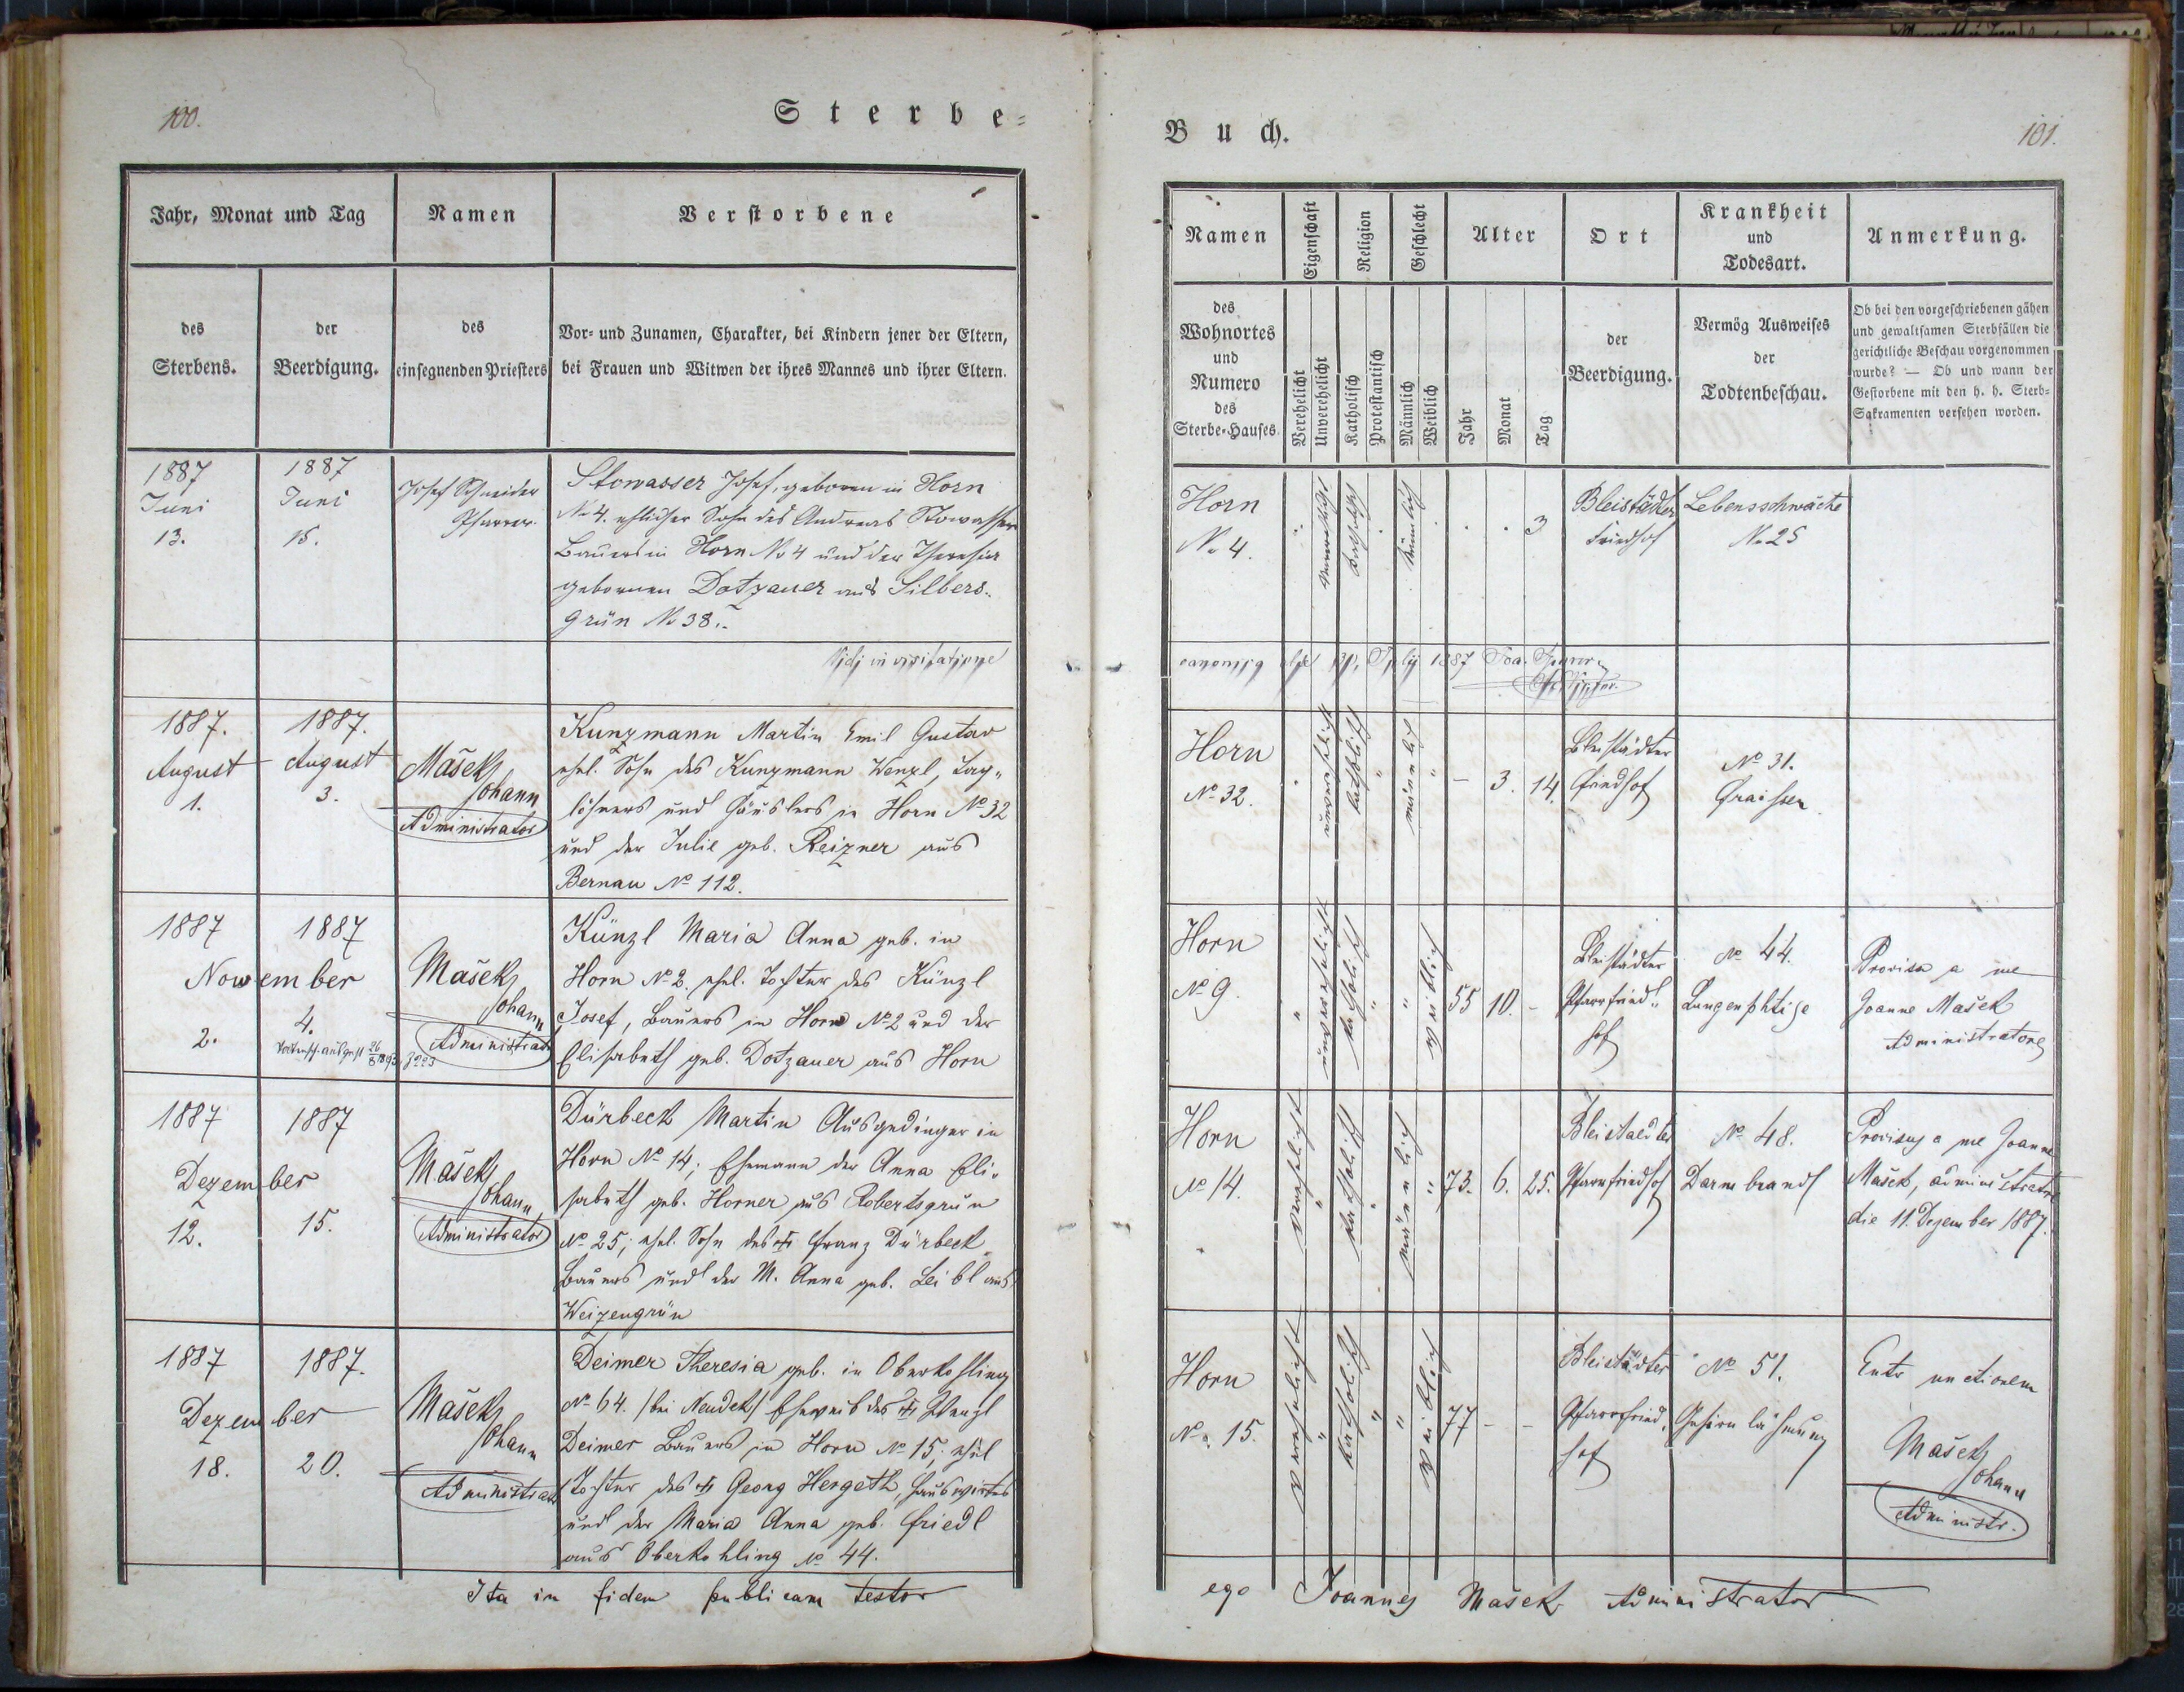 100.
Sterbe=
Jahr, Monat und Tag
Namen
Verstorbene
des
Sterbens.
der
Beerdigung.
des
einsegnenden Priesters
Vor= und Zunamen, Charakter, bei Kindern jener der Eltern,
bei Frauen und Witwen der ihres Mannes und ihrer Eltern.
1887
Juni
13.
1887
Juni
15.
Josef Schneider
Pfarrer.
Stowasser Josef, geboren in Horn
No 4. ehlicher Sohn des Andreas Stowasser
Bauers in Horn No 4 und der Theresia
gebornen Dotzauer aus Silbers=
grün No 38.
Vidi in visitatione
1887.
August
1.
1887.
August
3.
Mašek
Johann
Administrator
Kunzmann Martin Emil Gustav
ehel. Sohn des Kunzmann Wenzl, Tag„
löhners und Häuslers in Horn No 32
und der Julie geb. Reizner aus
Bernau No 112.
1887
1887
November
2.
4.
Mašek
Johann
Administrator
Künzl Maria Anna geb. in
Horn No 2. ehel. Tochter des Künzl
Josef, Bauers in Horn No 2 und der
Elisabeth geb. Dotzauer aus Horn
1887
1887
Dezember
12.
15.
Mašek
Johann
Administrator
Dürbeck Martin Ausgedinger in
Horn No 14; Ehemann der Anna Eli=
sabeth geb. Horner aus Robertsgrün
No 25; ehel. Sohn des † Franz Dürbeck
Bauers und der M. Anna geb. Leibl aus
Weizengrün
1887
1887.
Dezember
18.
20.
Mašek
Johann
Administrator
Deimer Theresia geb. in Oberkohling
No 64. /bei Neudek/ Eheweib des † Wenzl
Deimer Bauers in Horn No 15; ehel
Tochter des † Georg Hergeth, Hauswirtes
und der Maria Anna geb. Friedl
aus Oberkohling No 44.
Ita in fidem publicam testor
Buch.
101.
Namen
Eigenschaft
Religion
Geschlecht
Alter
Ort
Krankheit
und
Todesart.
Anmerkung.
des
Wohnortes
und
Numero
des
Sterbe=Hauses
Verehelicht
Unverehelicht
Katholisch
Protestantisch
Männlich
Weiblich
Jahr
Monat
Tag
der
Beerdigung.
Vermög Ausweises
der
Todtenbeschau.
Ob bei den vorgeschriebenen gähen
und gewaltsamen Sterbfällen die
gerichtliche Beschau vorgenommen
wurde? — Ob und wann der
Gestorbene mit den h. h. Sterb=
Sakramenten versehen worden.
Horn
No 4.
katholisch
männlich
3
Bleistädter
Friedhof
Lebensschwäche
No 25
1887
Horn
No 32.
unverehelicht
katholisch
männlich
3. 14.
Bleistädter
Friedhof
No 31.
Fraissen
Horn
No 9.
unverehelicht
katholisch
weiblich
55 10. -
Bleistädter
Pfarrfried=
hof
No 44.
Provisa a me
Joanne Mašek
Administratore
Horn
No 14.
verehelicht
katholisch
männlich
73. 6. 25.
Bleistaedter
Pfarrfriedhof
No 48.
Darmbrand
Provisus a me Joanne
Mašek, administratore
die 11. Dezember 1887.
Horn
No. 15.
verehelicht
katholisch
weiblich
77 - -
Bleistädter
Pfarrfried=
hof
No 51.
Gehirnlähmung
unctionem
Mašek
Johann
Administr.
ego Joannes Mašek Administrator